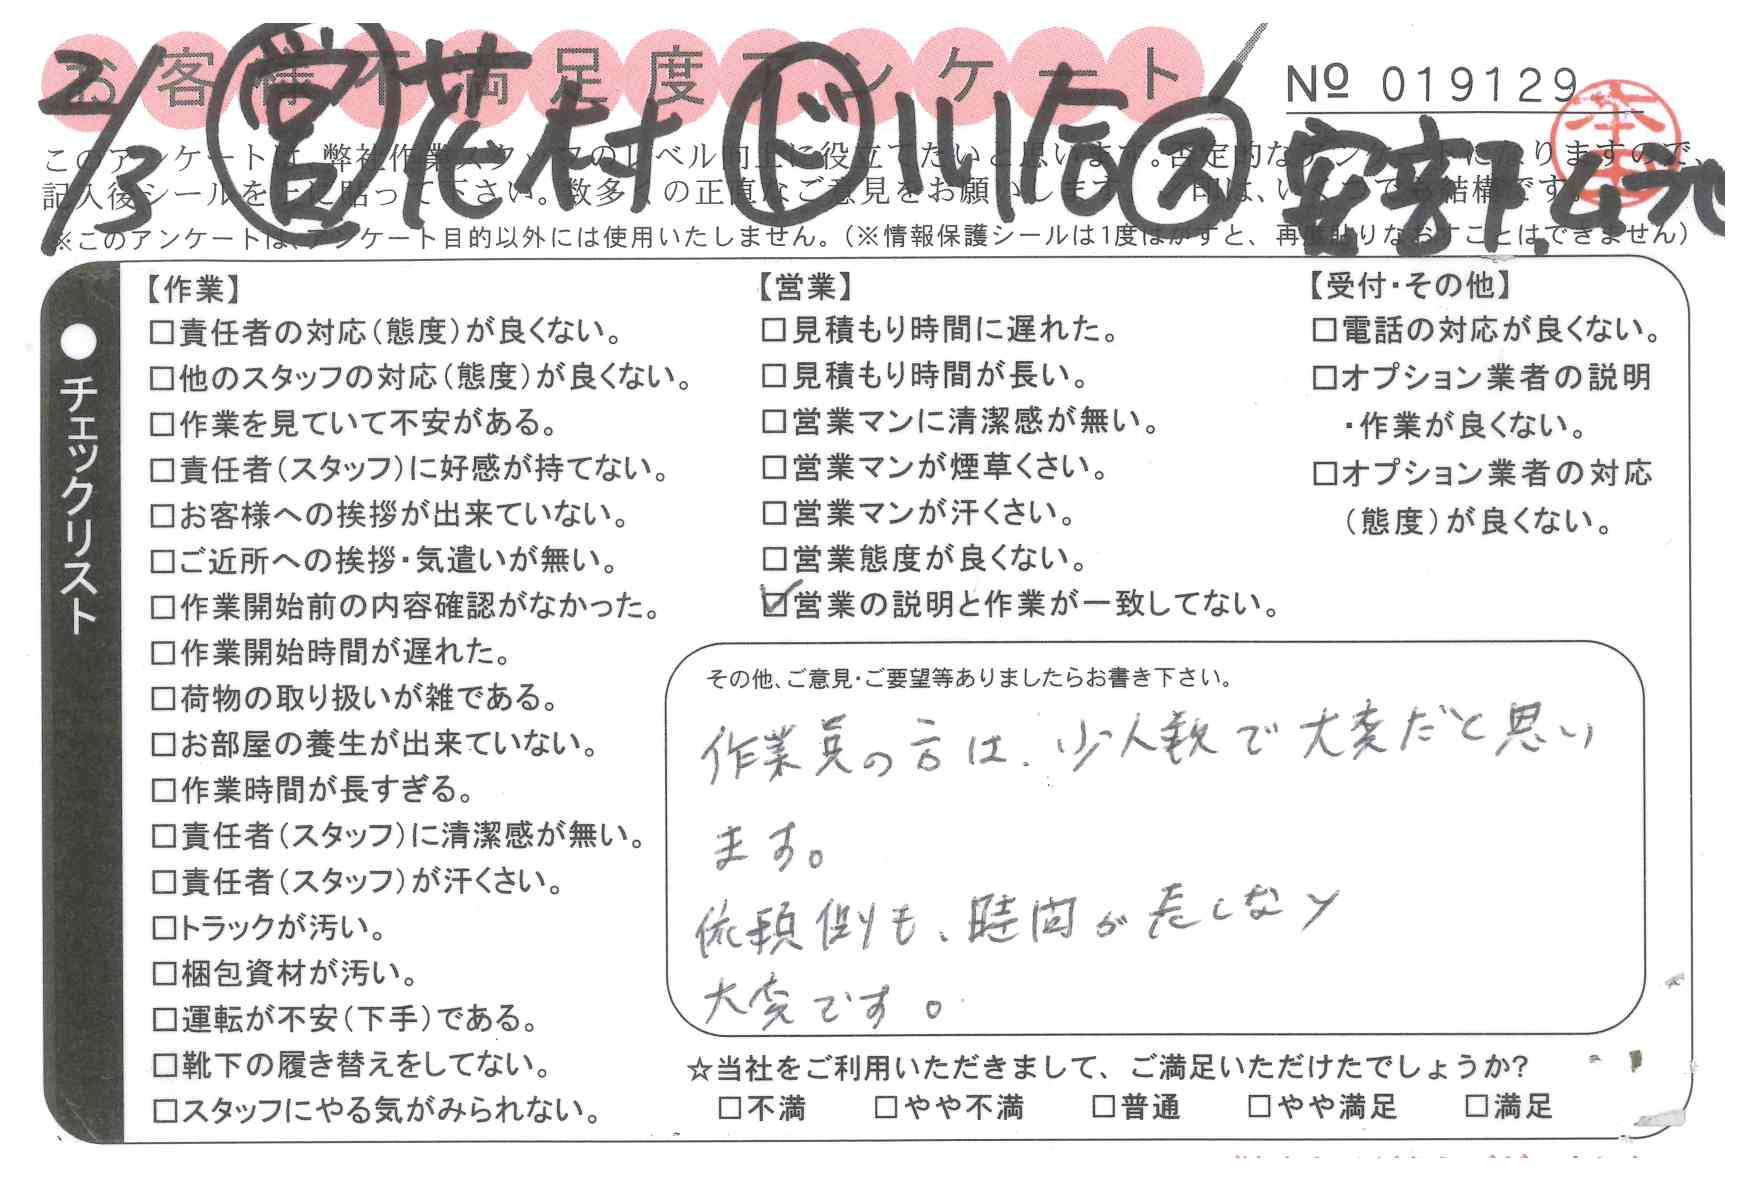 お客様不満足度アンケート
№ 019129
2/3 営 花村 ド 川合 ス 安部.
このアンケートは、弊社作業スタッフのレベル向上に役立てたいと思います。否定的なアンケートになりますので、
記入後シールを上に貼って下さい。数多くの正直なご意見をお願いします。 印は、いくつでも結構です。
※このアンケートは、アンケート目的以外には使用いたしません。(※情報保護シールは1度はがすと、再度貼りなおすことはできません)
●チェックリスト
【作業】
□責任者の対応(態度)が良くない。
□他のスタッフの対応(態度)が良くない。
□作業を見ていて不安がある。
□責任者(スタッフ)に好感が持てない。
□お客様への挨拶が出来ていない。
□ご近所への挨拶・気遣いが無い。
□作業開始前の内容確認がなかった。
□作業開始時間が遅れた。
□荷物の取り扱いが雑である。
□お部屋の養生が出来ていない。
□作業時間が長すぎる。
□責任者(スタッフ)に清潔感が無い。
□責任者(スタッフ)が汗くさい。
□トラックが汚い。
□梱包資材が汚い。
□運転が不安(下手)である。
□靴下の履き替えをしてない。
□スタッフにやる気がみられない。
【営業】
□見積もり時間に遅れた。
□見積もり時間が長い。
□営業マンに清潔感が無い。
□営業マンが煙草くさい。
□営業マンが汗くさい。
□営業態度が良くない。
☑営業の説明と作業が一致してない。
【受付・その他】
□電話の対応が良くない。
□オプション業者の説明
・作業が良くない。
□オプション業者の対応
(態度)が良くない。
その他、ご意見・ご要望等ありましたらお書き下さい。
作業員の方は、少人数で大変だと思い
ます。
依頼側も、時間が表しなく
大変です。
☆当社をご利用いただきまして、ご満足いただけたでしょうか?
□不満 □やや不満 □普通 □やや満足 □満足